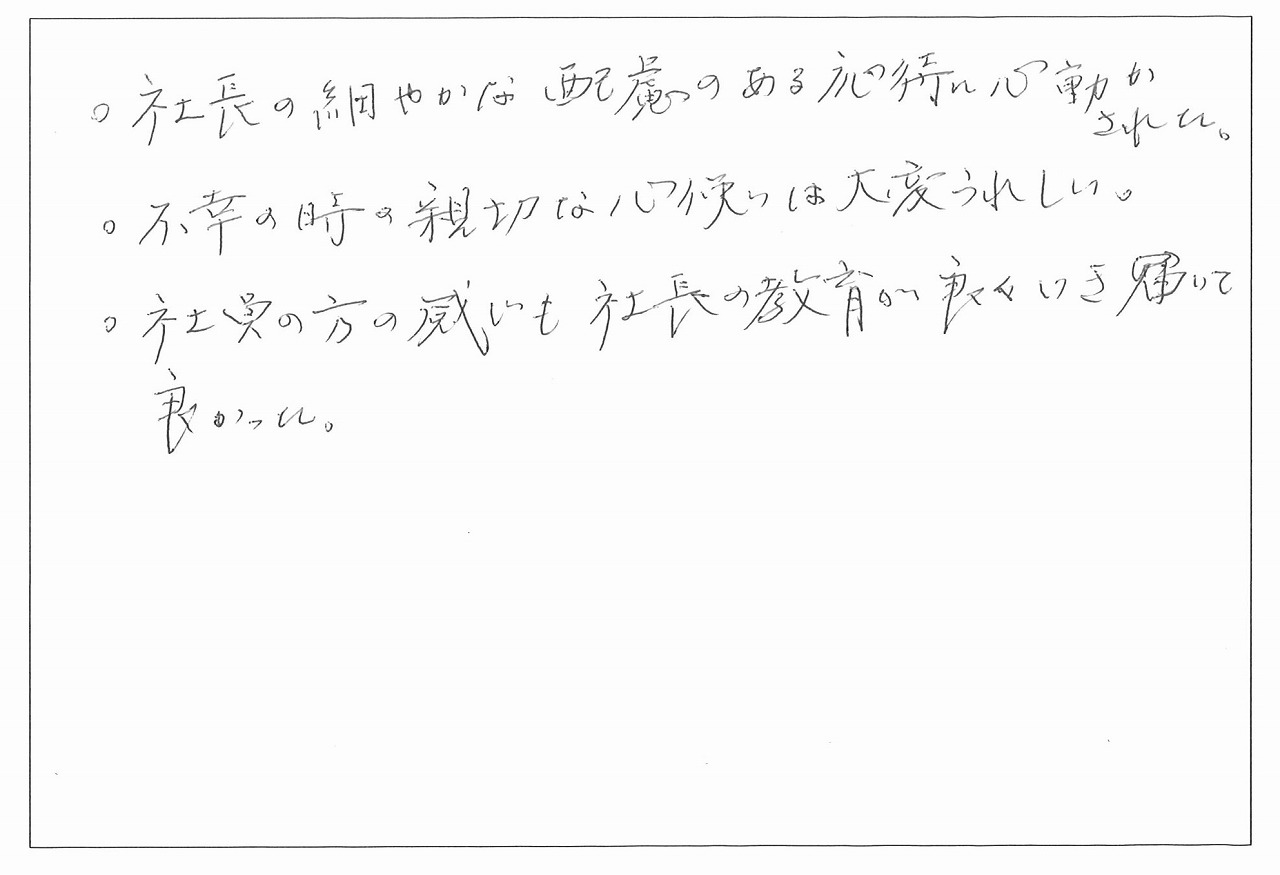 ○ 社長の細やかな配慮のある応待に心動か
された。
○ 不幸の時の親切な心使いは大変うれしい。
○ 社員の方の感じも社長の教育が良くいき届いて
良かった。